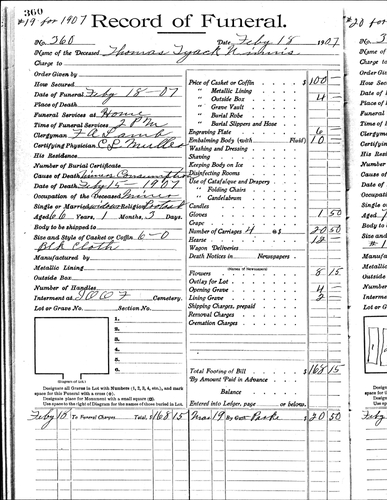 360
#19 for 1907
Record of Funeral.
No. 360
Date Feby 18 1907
Name of the Deceased Thomas Tyack
Charge to
Order Given by
How Secured
Date of Funeral Feby 18 - 07
Place of Death
Funeral Services at Home
Time of Funeral Services 2 P M
Clergyman F A Lamb
Certifying Physician C L
His Residence
Number of Burial Certificate
Cause of Death Miners Consumption
Date of Death Feby 15 - 1907
Occupation of the Deceased Miner
Single or Married Religion
Aged 66 Years, 1 Months, 3 Days.
Body to be shipped to
Size and Style of Casket or Coffin 6-0
Blk Cloth
Manufactured by
Metallic Lining
Outside Box
Number of Handles
Interment at I O O F Cemetery.
Lot or Grave No. Section No.
1.
2.
3.
4.
5.
6.
(Diagram of Lot.)
Designate all Graves in Lot with Numbers (1, 2, 3, 4, etc.), and mark
space for this Funeral with a cross (+).
Designate place for Monument with a small square (□).
Use space to the right of Diagram for the names of those buried in Lot.
Price of Casket or Coffin $ 100 —
" Metallic Lining
" Outside Box 4 —
" Grave Vault
" Burial Robe
" Burial Slippers and Hose
Engraving Plate 6 —
Embalming Body (with Fluid) 10
Washing and Dressing
Shaving
Keeping Body on Ice
Disinfecting Rooms
Use of Catafalque and Drapery
" Folding Chairs
" Candelabrum
Candles
Gloves 1 50
Crape
Number of Carriages 4 @ $ 20 50
Hearse 12 —
Wagon Deliveries
Death Notices in Newspapers
(Names of Newspapers)
Flowers 8 15
Outlay for Lot
Opening Grave 4 —
Lining Grave 2 —
Shipping Charges, prepaid
Removal Charges
Cremation Charges
Total Footing of Bill $ 168 15
By Amount Paid in Advance
Balance
Entered into Ledger, page or below.
Feby 18 To Funeral Charges Total, $ 168 15
Mar 19 By $ 20 50
#20 for